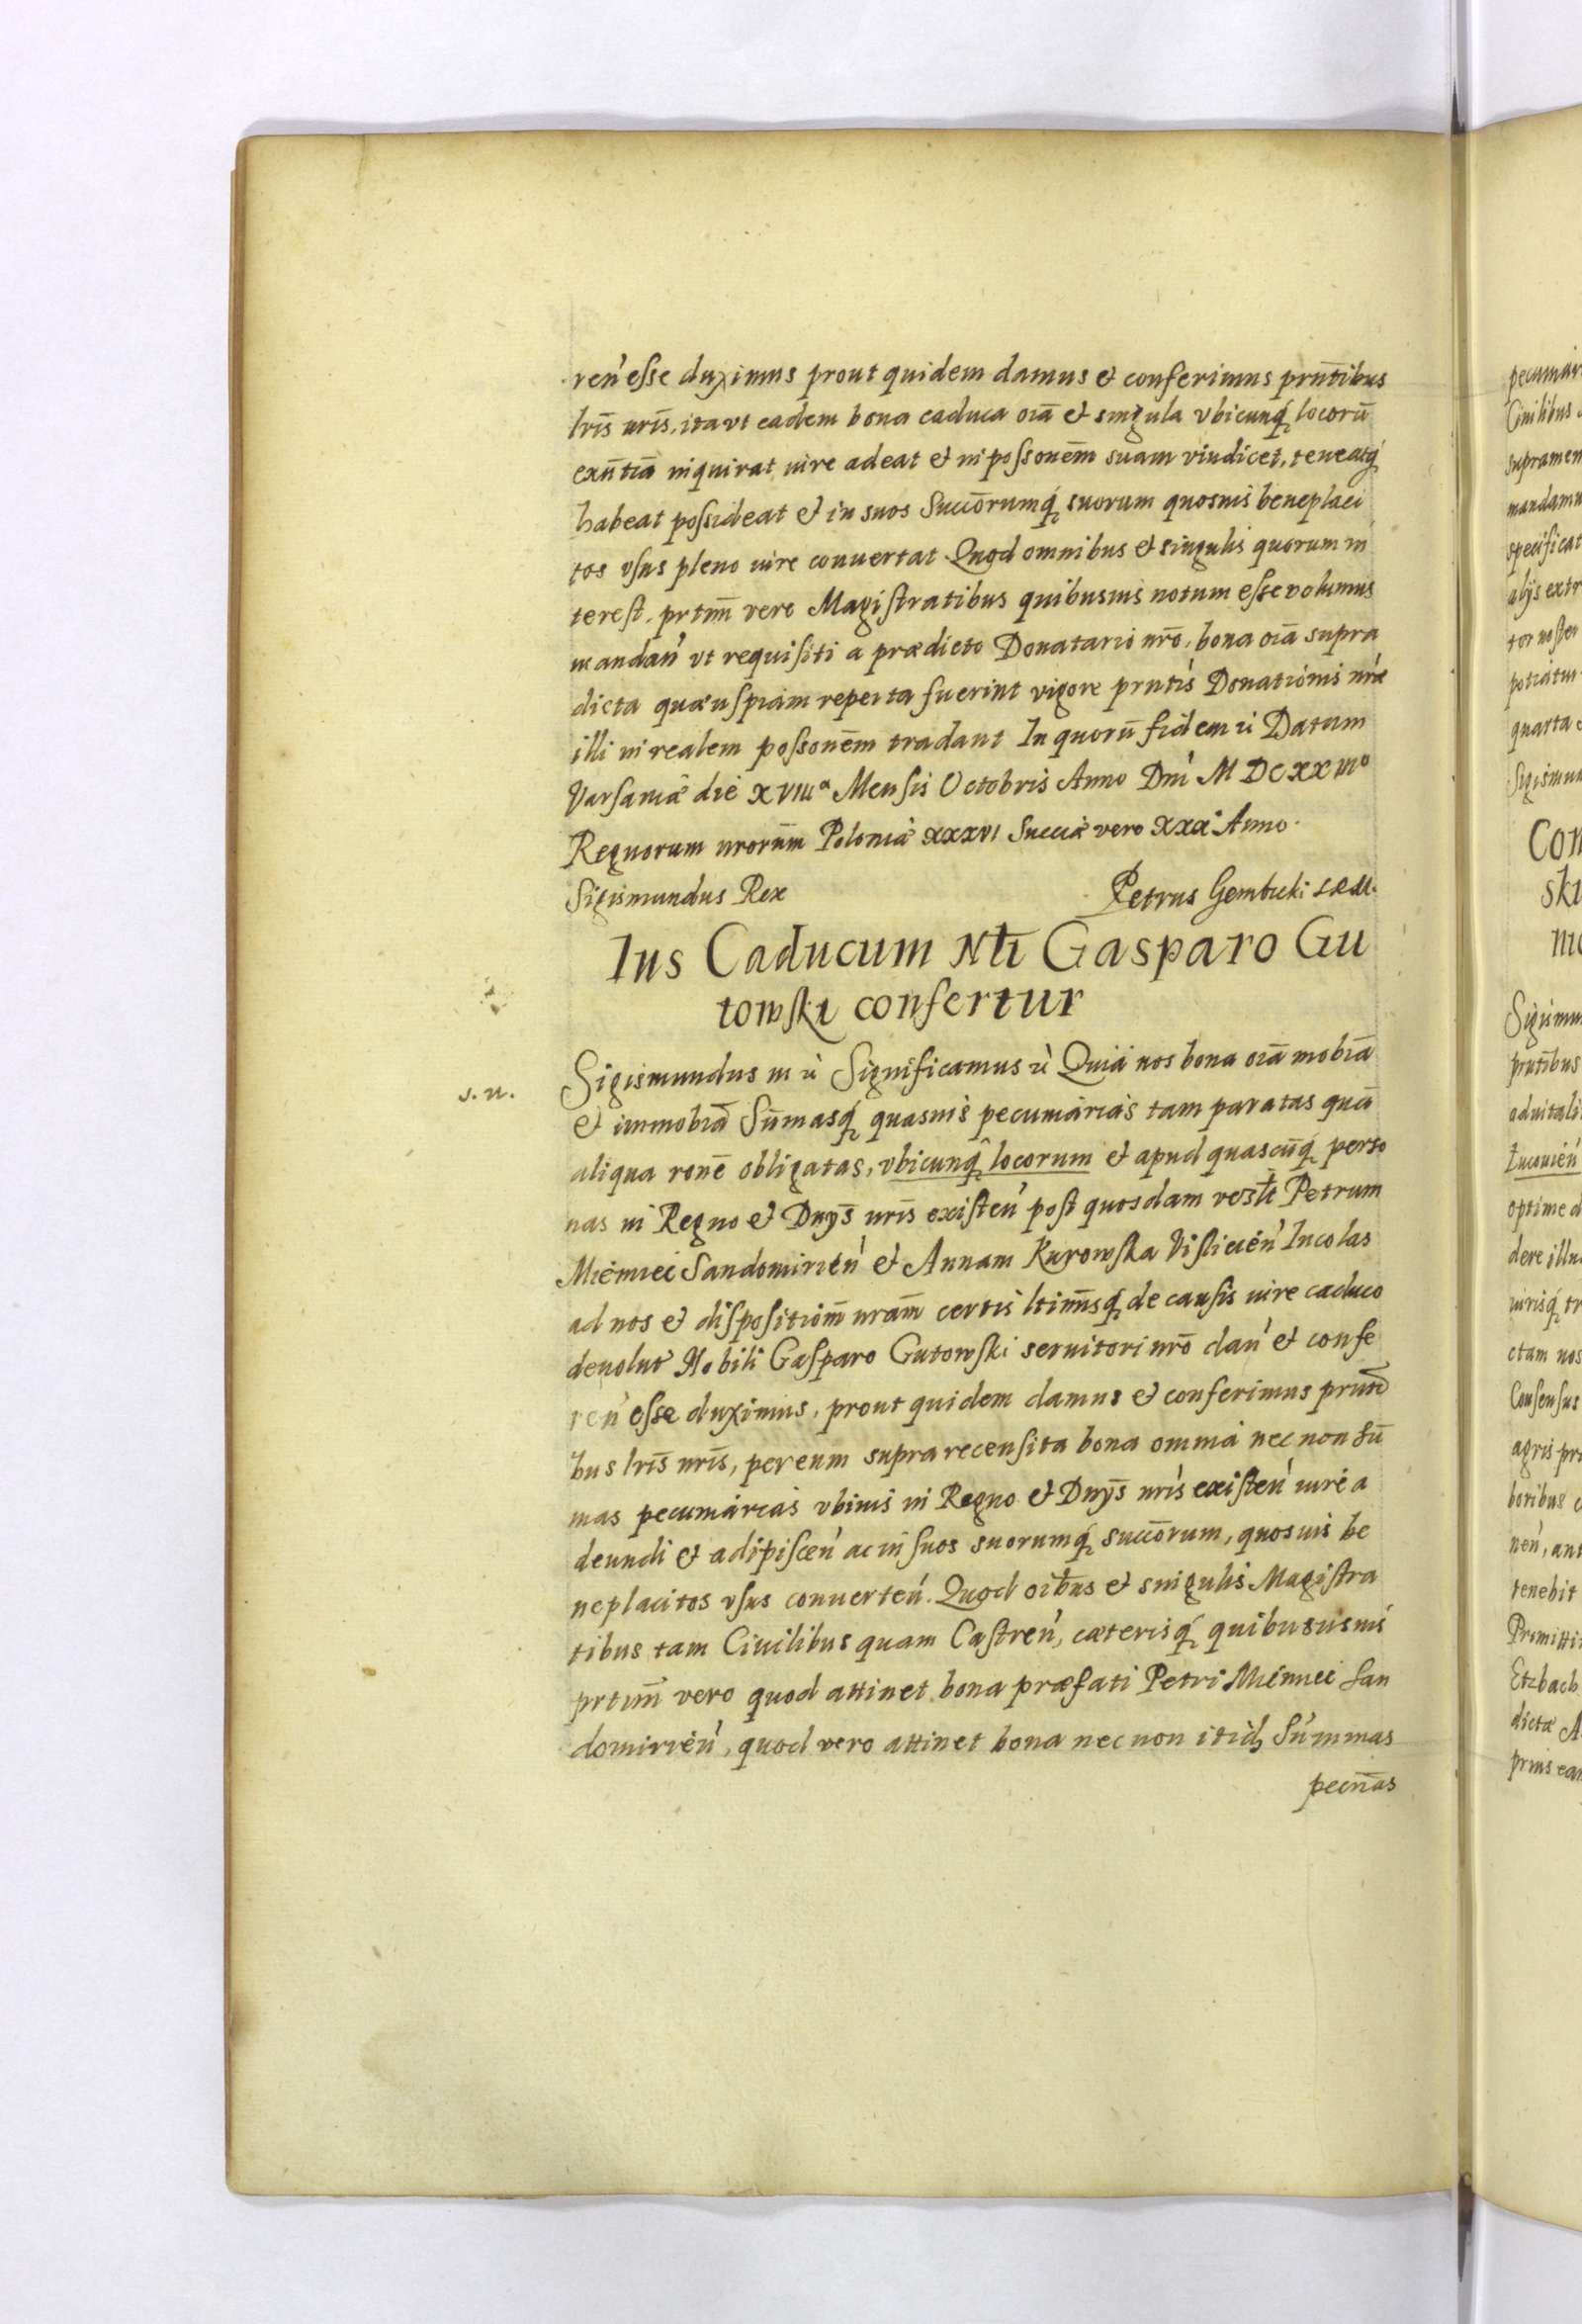 ren̄ esse duximus prout quidem damus et conferimus prn̄tibus
lrīs nrīs, ita vt eadem bona caduca oīa et singula vbicunq́ locorū
exn̄tia inquirat iure adeat et in possonēm suam vindicet, teneatq́
habeat possideat et in suos Succōrumq́ suorum quosuis beneplaci
tos vsus pleno iure conuertat. Quod omnibus et singulis quorum in
terest. prtim̄ vero Magistratibus quibusuis notum esse volumus
mandan̄ vt requisiti a prædicto Donatario nrō, bona oīa supra
dicta quæuspiam reperta fuerint vigore prntis Donationis nræ
illi in realem possonēm tradant In quorū fidem ū Datum
Varsauiæ die XVIIIa Mensis Octobris Anno Dnī M DC XX IIIo
Regnorum nrorūm Poloniæ XXXVI Sueciæ vero XXX Anno.
Sigismundus Rex Petrus Gembicki S R M.
Ius Caducum Nb̄li Gasparo Gu
towski confertur
s. n.
Sigismundus III ū Significamus ū Quia nos bona oīa mobīa
et immobīa Sūmasq́ quasuis pecuniarias tam paratas quā
aliqua ronē obligatas, vbicunq́ locorum et apud quascūq́ perso
nas in Regno et Dnȳs nrīs existen̄ post quosdam Petrum
Miemiec Sandomirien̄ et Annam Kurowska Vislicien̄ Incolas
ad nos et dispositiom̄ nram̄ certis ltim̄sq́ de causis iure caduco
deuolut Nobili Gasparo Gutowski seruitori nrō dan̄ et confe
ren̄ esse duximus, prout quidem damus et conferimus prnti
bus lrīs nrīs, per eum supra recensita bona omnia nec non sū
mas pecuniarias vbiuis in Regno et Dnȳs nris existen̄ iure a
deundi et adipiscen̄ ac in suos suorumq́ succōrum, quosuis be
neplacitos vsus conuerten̄. Quod oib̄us et singulis Magistra
tibus tam Ciuilibus quam Castren̄, cæterisq́ quibususuis
prtim̄ vero quod attinet bona præfati Petri Miemiec San
domirien̄, quod vero attinet bona nec non itid̨ Sūmmas
pecn̄as